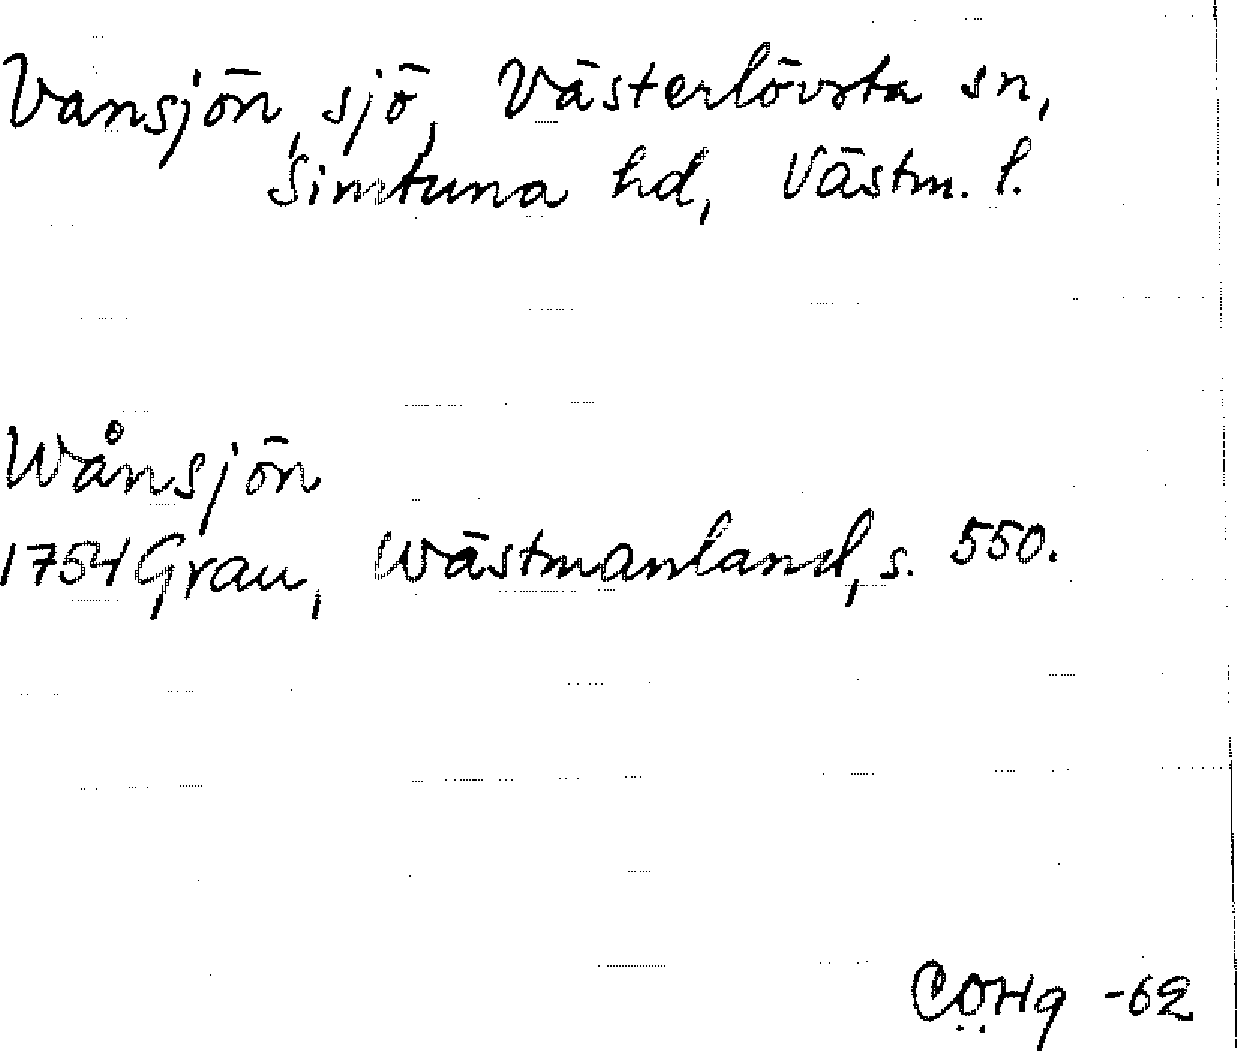 Vansjön, sjö, Västerlövsta sn,
Simtuna hd, Västm. l.
Wånsjön
1754 Grau, Wästmanland, s. 550.
CÖHg -62